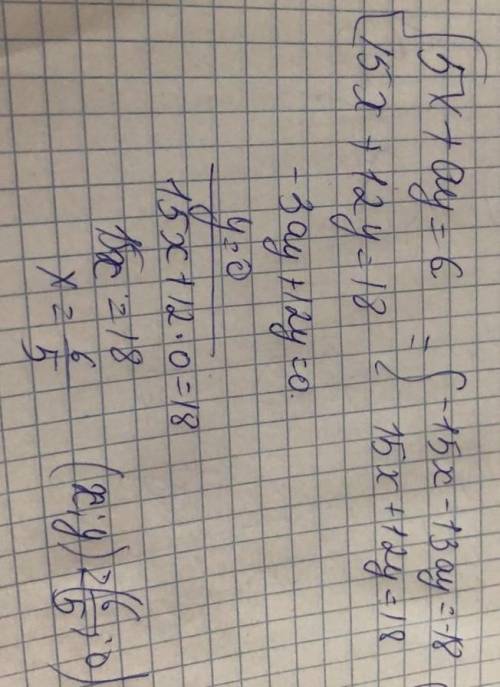 { 5x + ay = 6
15x + 12y = 18
= { -15x - 13ay = -18
15x + 12y = 18
-3ay + 12y = 0
y = 0
15x + 12 · 0 = 18
15x = 18
x = 6/5
(x; y) = (6/5; 0)